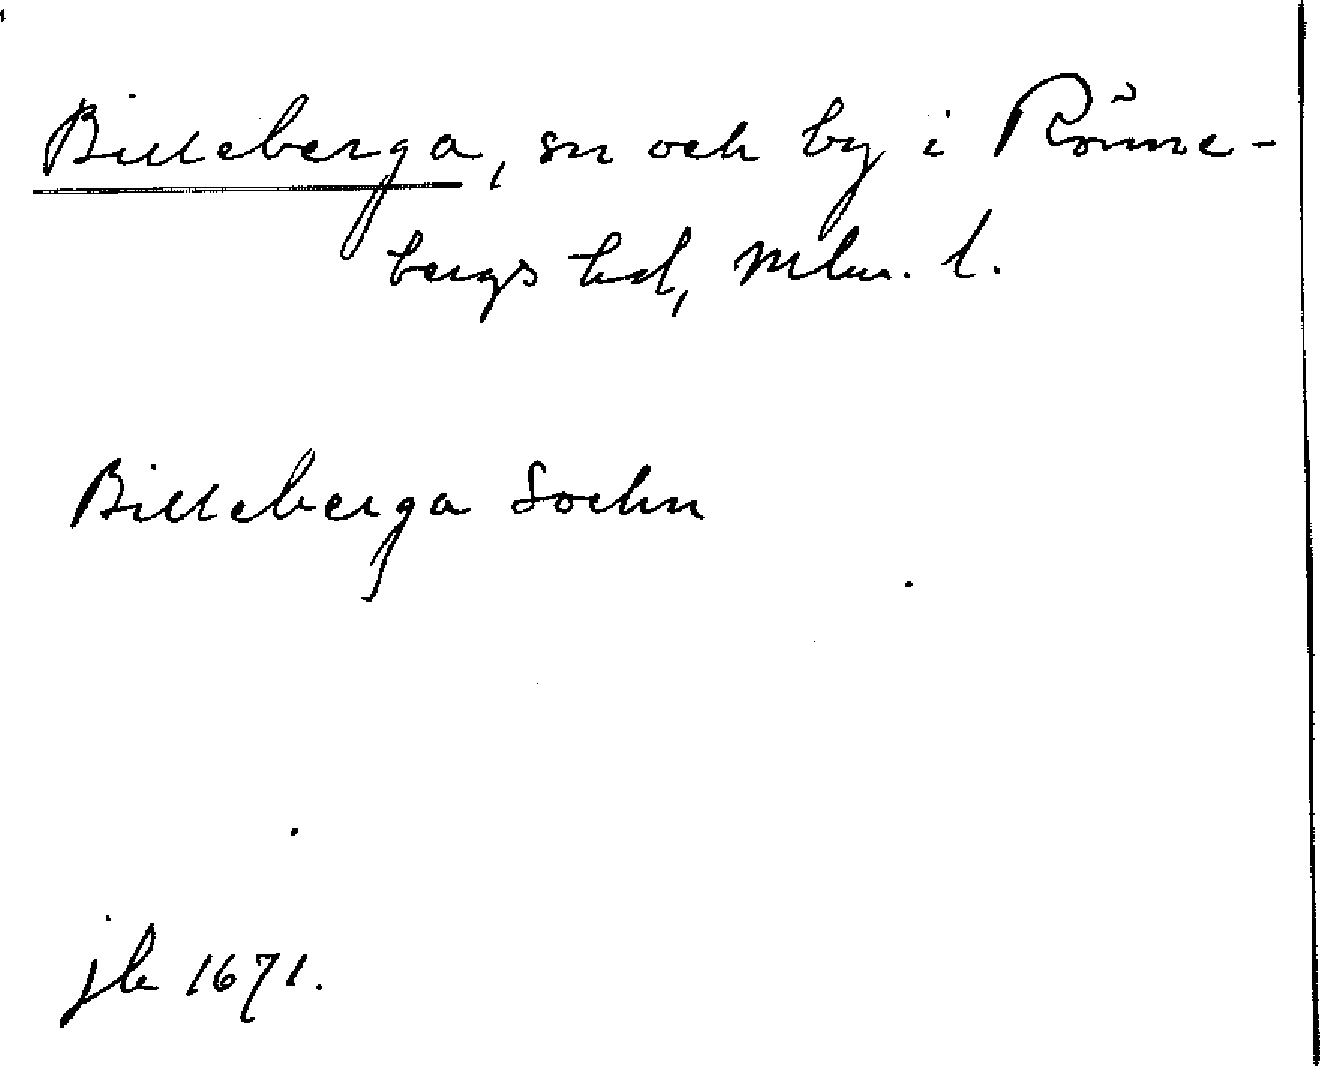 Billeberga, sn och by i Rönne-
bergs hd, Mlm. l.
Billeberga Sochn
jb 1671.